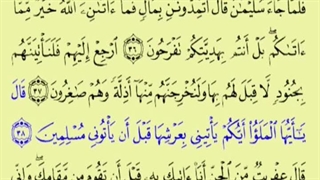 فَلَمَّا جَاءَ سُلَيْمَٰنَ قَالَ أَتُمِدُّونَنِ بِمَالٍ فَمَا ءَاتَىٰنِۦَ ٱللَّهُ خَيْرٌ مِّمَّا
ءَاتَىٰكُم بَلْ أَنتُم بِهَدِيَّتِكُمْ تَفْرَحُونَ ٣٦ ٱرْجِعْ إِلَيْهِمْ فَلَنَأْتِيَنَّهُم
بِجُنُودٍ لَّا قِبَلَ لَهُم بِهَا وَلَنُخْرِجَنَّهُم مِّنْهَا أَذِلَّةً وَهُمْ صَٰغِرُونَ ٣٧ قَالَ
يَٰٓأَيُّهَا ٱلْمَلَؤُا۟ أَيُّكُمْ يَأْتِينِى بِعَرْشِهَا قَبْلَ أَن يَأْتُونِى مُسْلِمِينَ ٣٨
قَالَ عِفْرِيتٌ مِّنَ ٱلْجِنِّ أَنَا۠ ءَاتِيكَ بِهِۦ قَبْلَ أَن تَقُومَ مِن مَّقَامِكَ وَإِنِّى